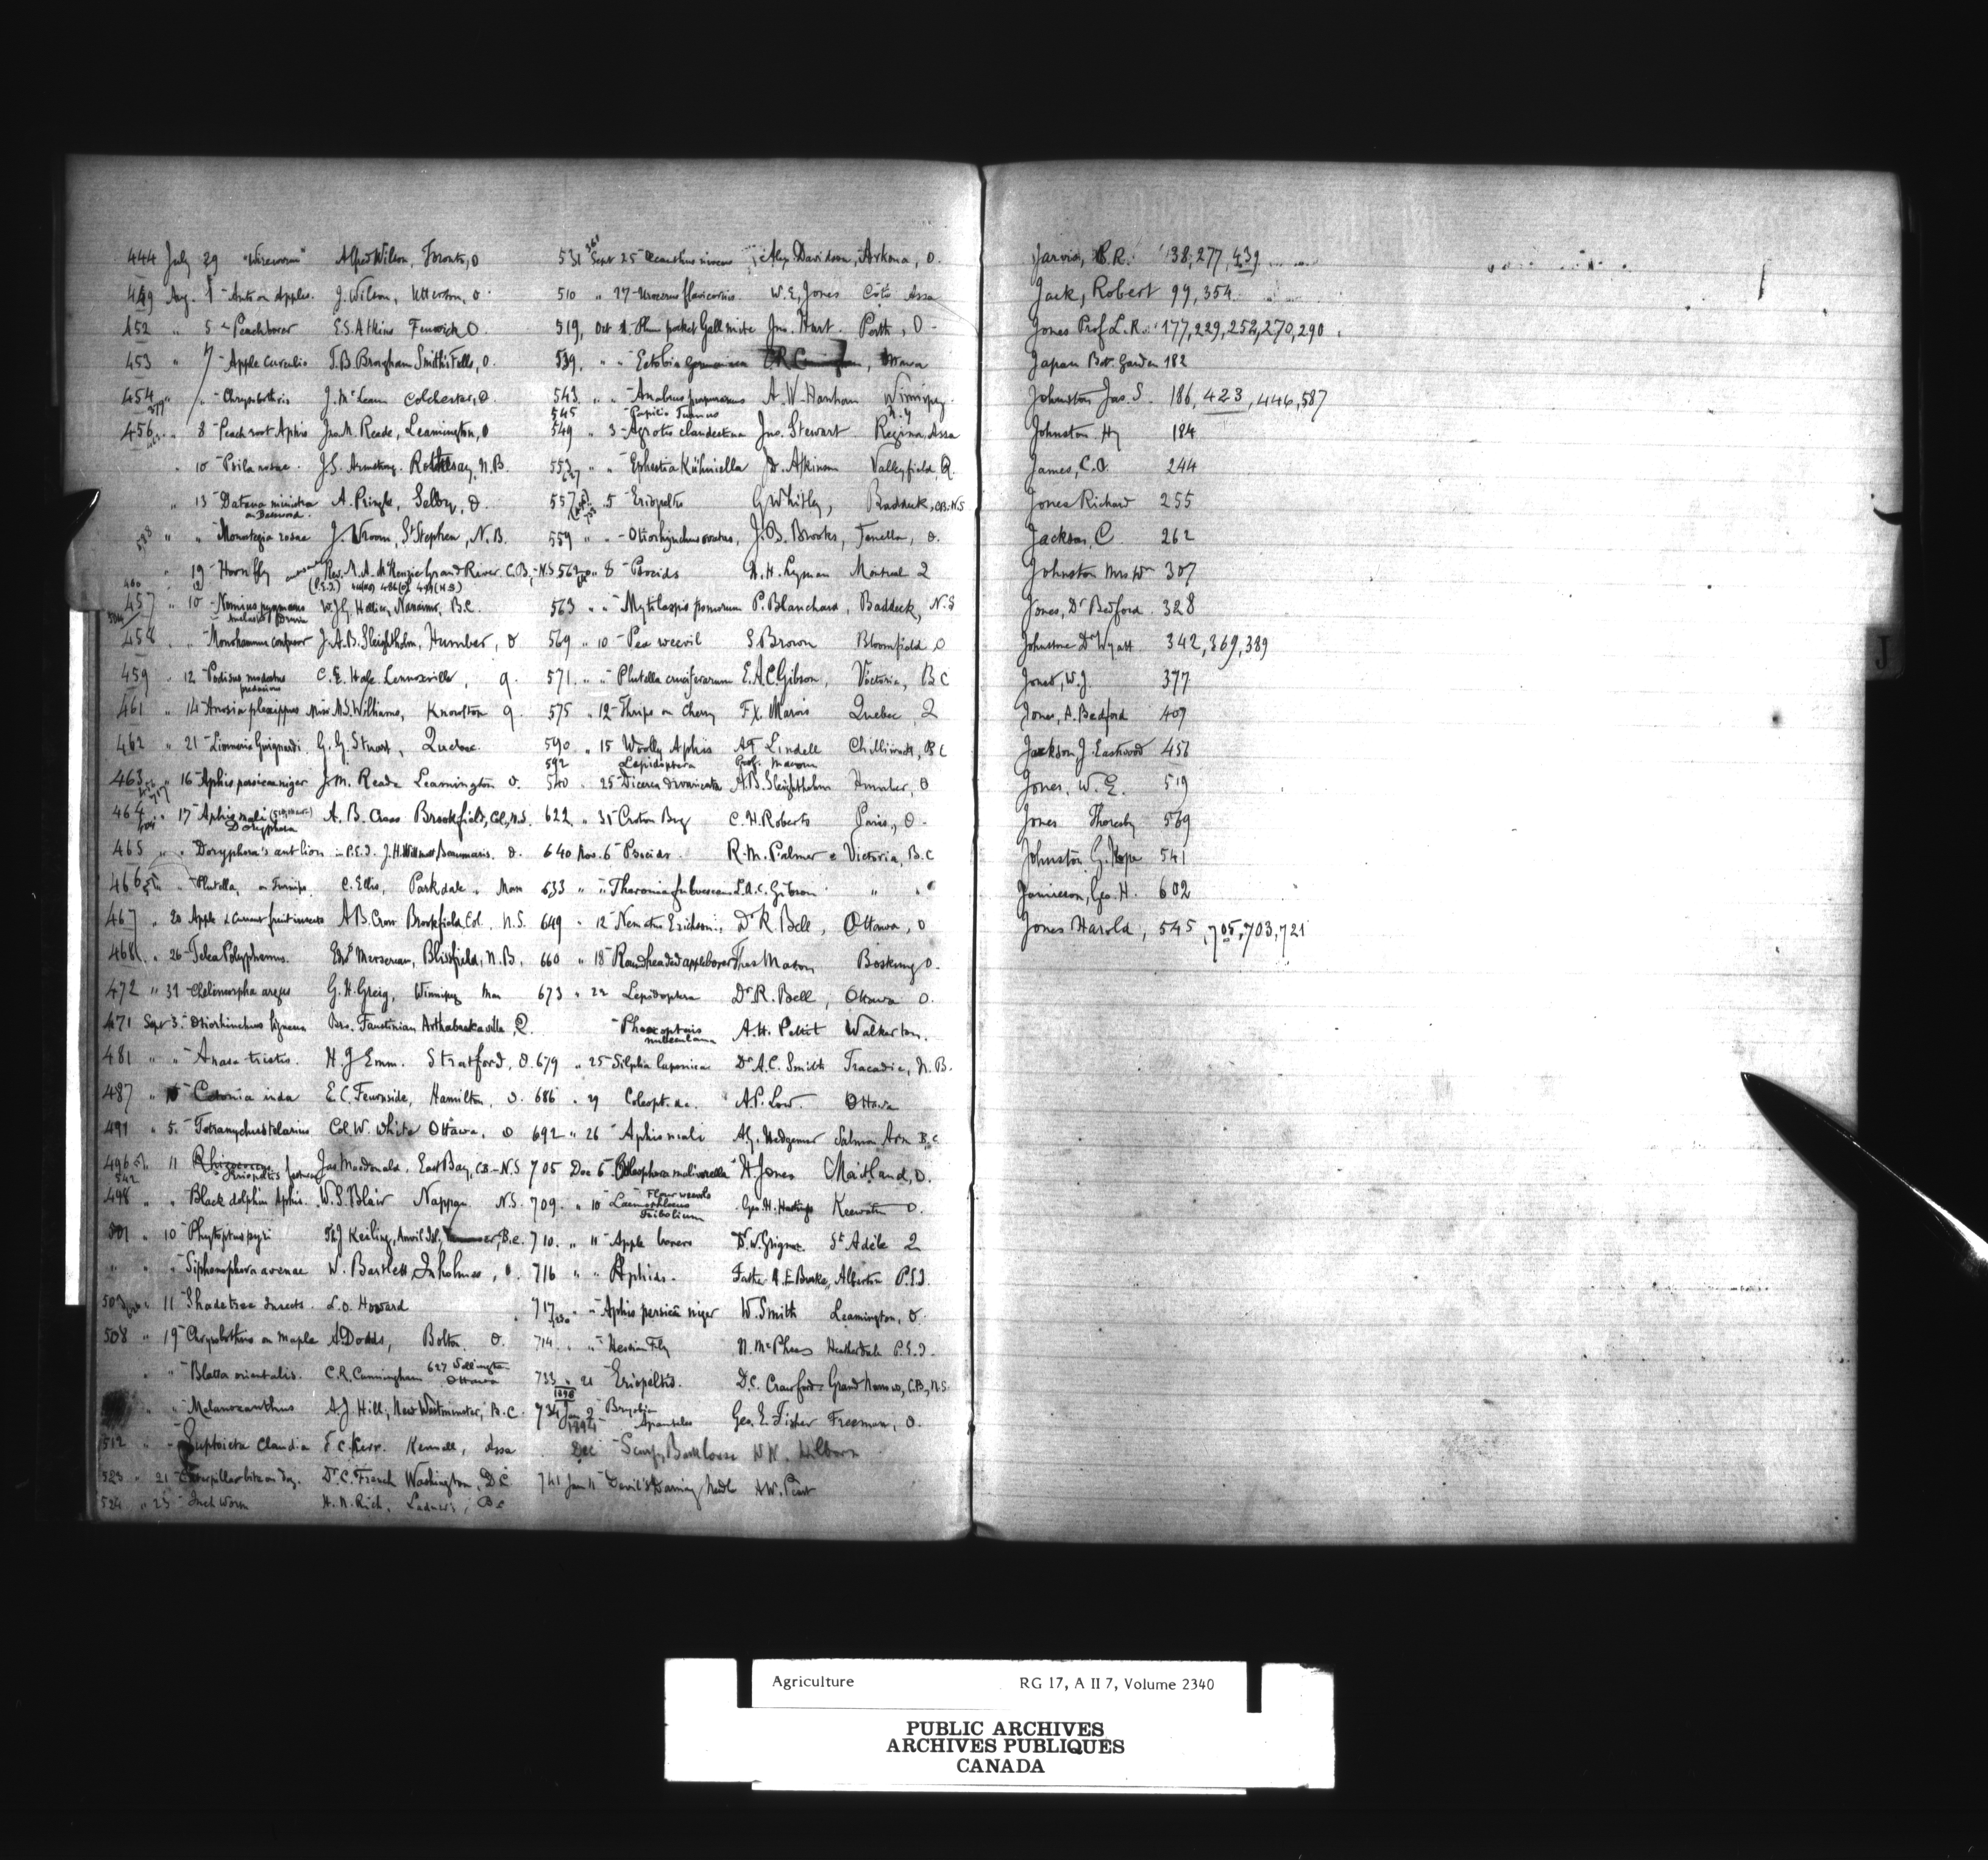 444 July 29 "Wireworm" Alfred Wilson, Toronto, O
449 Aug. 1 - Ants on Apples. J. Wilson, Utterson, O.
452 " 5 - Peach borer E.S. Atkins Fenwick O.
453 " 7 - Apple Curculio T.B. Brougham Smiths Falls, O.
454 " " - Chrysobothris J. McLean Colchester, O.
456 " 8 - Peach root Aphis Jno. M. Reade, Leamington, O
" 10 - Psila rosae. J.S. Armstrong. Rothesay, N.B.
" 13 - Datana ministra A. Pringle, Selby, O
" " - Monostegia rosae J. Vroom, St Stephen, N.B.
" 19 - Horn fly Rev. M.A. McKenzie Grand River C.B., N.S
457 " 10 - Nomius pygmaeus Nanaimo, B.C.
458 " " - Monohammus confusor J.A.B. Sleightholm, Humber, O
459 " 12 - Podisus modestus C.E. Hale. Lennoxville, Q.
461 " 14 - Anosia plexippus Miss M.S. Williams, Knowlton Q
462 " 21 - G.G. Stuart, Quebec.
463 " 16 - Aphis persicae niger J.M. Reade Leamington O.
464 " 17 - Aphis mali A.B. Cross Brookfield, Col, N.S.
Doryphora
465 " " - Doryphora's ant lion in P.E.I. J.H. Willmott Beaumaris. O.
466 " - Plutella, on Turnips C. Ellis, Parkdale. Man
467 " 20 Apple & Currant fruit insects A.B. Crow Brookfield Col. N.S.
468 " 26 - Telea Polyphemus. Mersereau, Blissfield, N.B.
472 " 31 - Chelimorpha argus G.H. Greig, Winnipeg Man
471 Sept 3. - Otiorhinchus ligneus Bro. Faustinian Arthabaskaville, Q.
481 " " - Anasa tristis. H J Emm. Stratford, O.
487 " - Cetonia inda E.C. Fearnside, Hamilton, O.
491 " 5. - Tetranychus telarius Col. W. White Ottawa, O
496 " 11 Jas Macdonald. East Bay, C.B. - N.S
542 Eriopeltis
498 " " Black dolphin Aphis. W.S. Blair Nappan N.S.
501 " 10 - Phytoptus pyri Keiling, Anvil Isl, B.C.
" " " - Siphonophora avenae W. Bartlett Inholmes, O.
503 " 11 - Shade tree Insects. L.O. Howard
508 " 19 - Chrysobothris on Maple A Dodds, Bolton. O.
" " - Blatta orientalis. C.R. Cunningham 627 Wellington Ottawa
" " - Melanoxanthus A.J. Hill, New Westminster, B.C.
512 " - Euptoieta Claudia F.C. Kerr. Kennell, Assa
523 " 21 - Caterpillar bite on dog. Dr. C. French Washington, D.C.
524 " 23 - Inch worm H.N. Rich, Ladner's, B.C
531 Sept 25 - Oecanthus niveus Alex Davidson, Arkona, O.
510 " 27 - Urocerus flavicornis. W.E. Jones Coté Assa
519, Oct 1. - Plum pocket Gall mite Jno. Hart. Perth, O -
539. " " - Ectobia germanica Ottawa
543. " " - Anabrus purpurascens A.W. Hanham Winnipeg.
545 - Papilio Turnus
549 " 3 - Agrotis clandestina Jno. Stewart Regina, Assa
553 " " - Ephestia Kühniella D. Atkinson Valleyfield, Q.
557 " 5 - Eriopeltis G Whitley, Baddeck, CB. N.S
559 " " - Otiorhynchus ovatus, J.B. Brooks, Fenella, O.
562 " 8 - Psocids H.H. Lyman Montreal Q
563 " " - Mytilaspis pomorum P. Blanchard, Baddeck, N.S
569 " 10 - Pea weevil S. Brown Bloomfield O
571. " " - Plutella cruciferarum E.A.C. Gibson, Victoria, B C
575 " 12 - Thrips on Cherry F.X. Marois Quebec, Q
590 " 15 Woolly Aphis A.T Lindell Chilliwack, B C
592 Lepidoptera Prof. Macoun
540 " 25 - Dicerca divaricata A.B. Sleightholm Humber, O
622 " 31 - Croton Bug C.H. Roberts Paris, O -
640 Nov. 6 - Psocids. R.M. Palmer Victoria, B.C
633 " " - Theronia fulvescens E.A.C. Gibson " "
649 " 12 - Nematus Erichsonii, Dr R. Bell, Ottawa, O
660 " 18 - Roundheaded apple borer Thos Mason Boskung O.
673 " 22 - Lepidoptera Dr R. Bell, Ottawa O.
- Phoxopteris nubeculana A.H. Pettit Walkerton.
679 " 25 - Silpha lapponica Dr A.C. Smith Tracadie, N.B.
686 " 29 Coleopt. &c. A.P. Low. Ottawa
692 " 26 - Aphis mali Salmon Arm B.C
705 Dec 6 - Coleophora malivorella H Jones Maitland, O.
709. " 10 - Flour weevils Laemophloeus Tribolium Geo. H. Hastings Keewatin O.
710. " 11 - Apple borers Dr. W. Grignon St Adèle Q
716 " " - Aphids. Father A.E. Burke, Alberton P.E.I.
717 " " - Aphis persicae niger W. Smith Leamington, O.
714. " " - Hessian Fly N. McPhee Heatherdale P.E.I.
733 " 21 - Eriopeltis. D.C. Crawford - Grand Narrows, C.B., N.S.
1898
734 Jan 2 - Bryobia Apanteles Geo. E. Fisher Freeman, O.
Dec - Scurfy Bark louse
741 Jan 11 - Devil's Darning Needle A.W. Peart
Jarvis, C.R. 138, 277, 439
Jack, Robert 99, 354
Jones Prof L.R. 177, 229, 252, 270, 290.
Japan Bot. Garden 182
Johnston Jas. S. 186, 423, 446, 587
Johnston Hy 184
James, C.C. 244
Jones Richard 255
Jackson, C. 262
Johnston Mrs Wm 307
Jones, Dr Bedford 328
Johnstone Dr Wyatt 342, 369, 389
Jones, W.J. 377
Jones, A. Bedford 407
Jackson J. Eastwood 456
Jones, W.E. 519
Jones Thoresby 569
Johnston G. Hope 541
Jamieson, Geo. H. 602
Jones Harold, 545, 705, 703, 721
J
Agriculture RG 17, A II 7, Volume 2340
PUBLIC ARCHIVES
ARCHIVES PUBLIQUES
CANADA